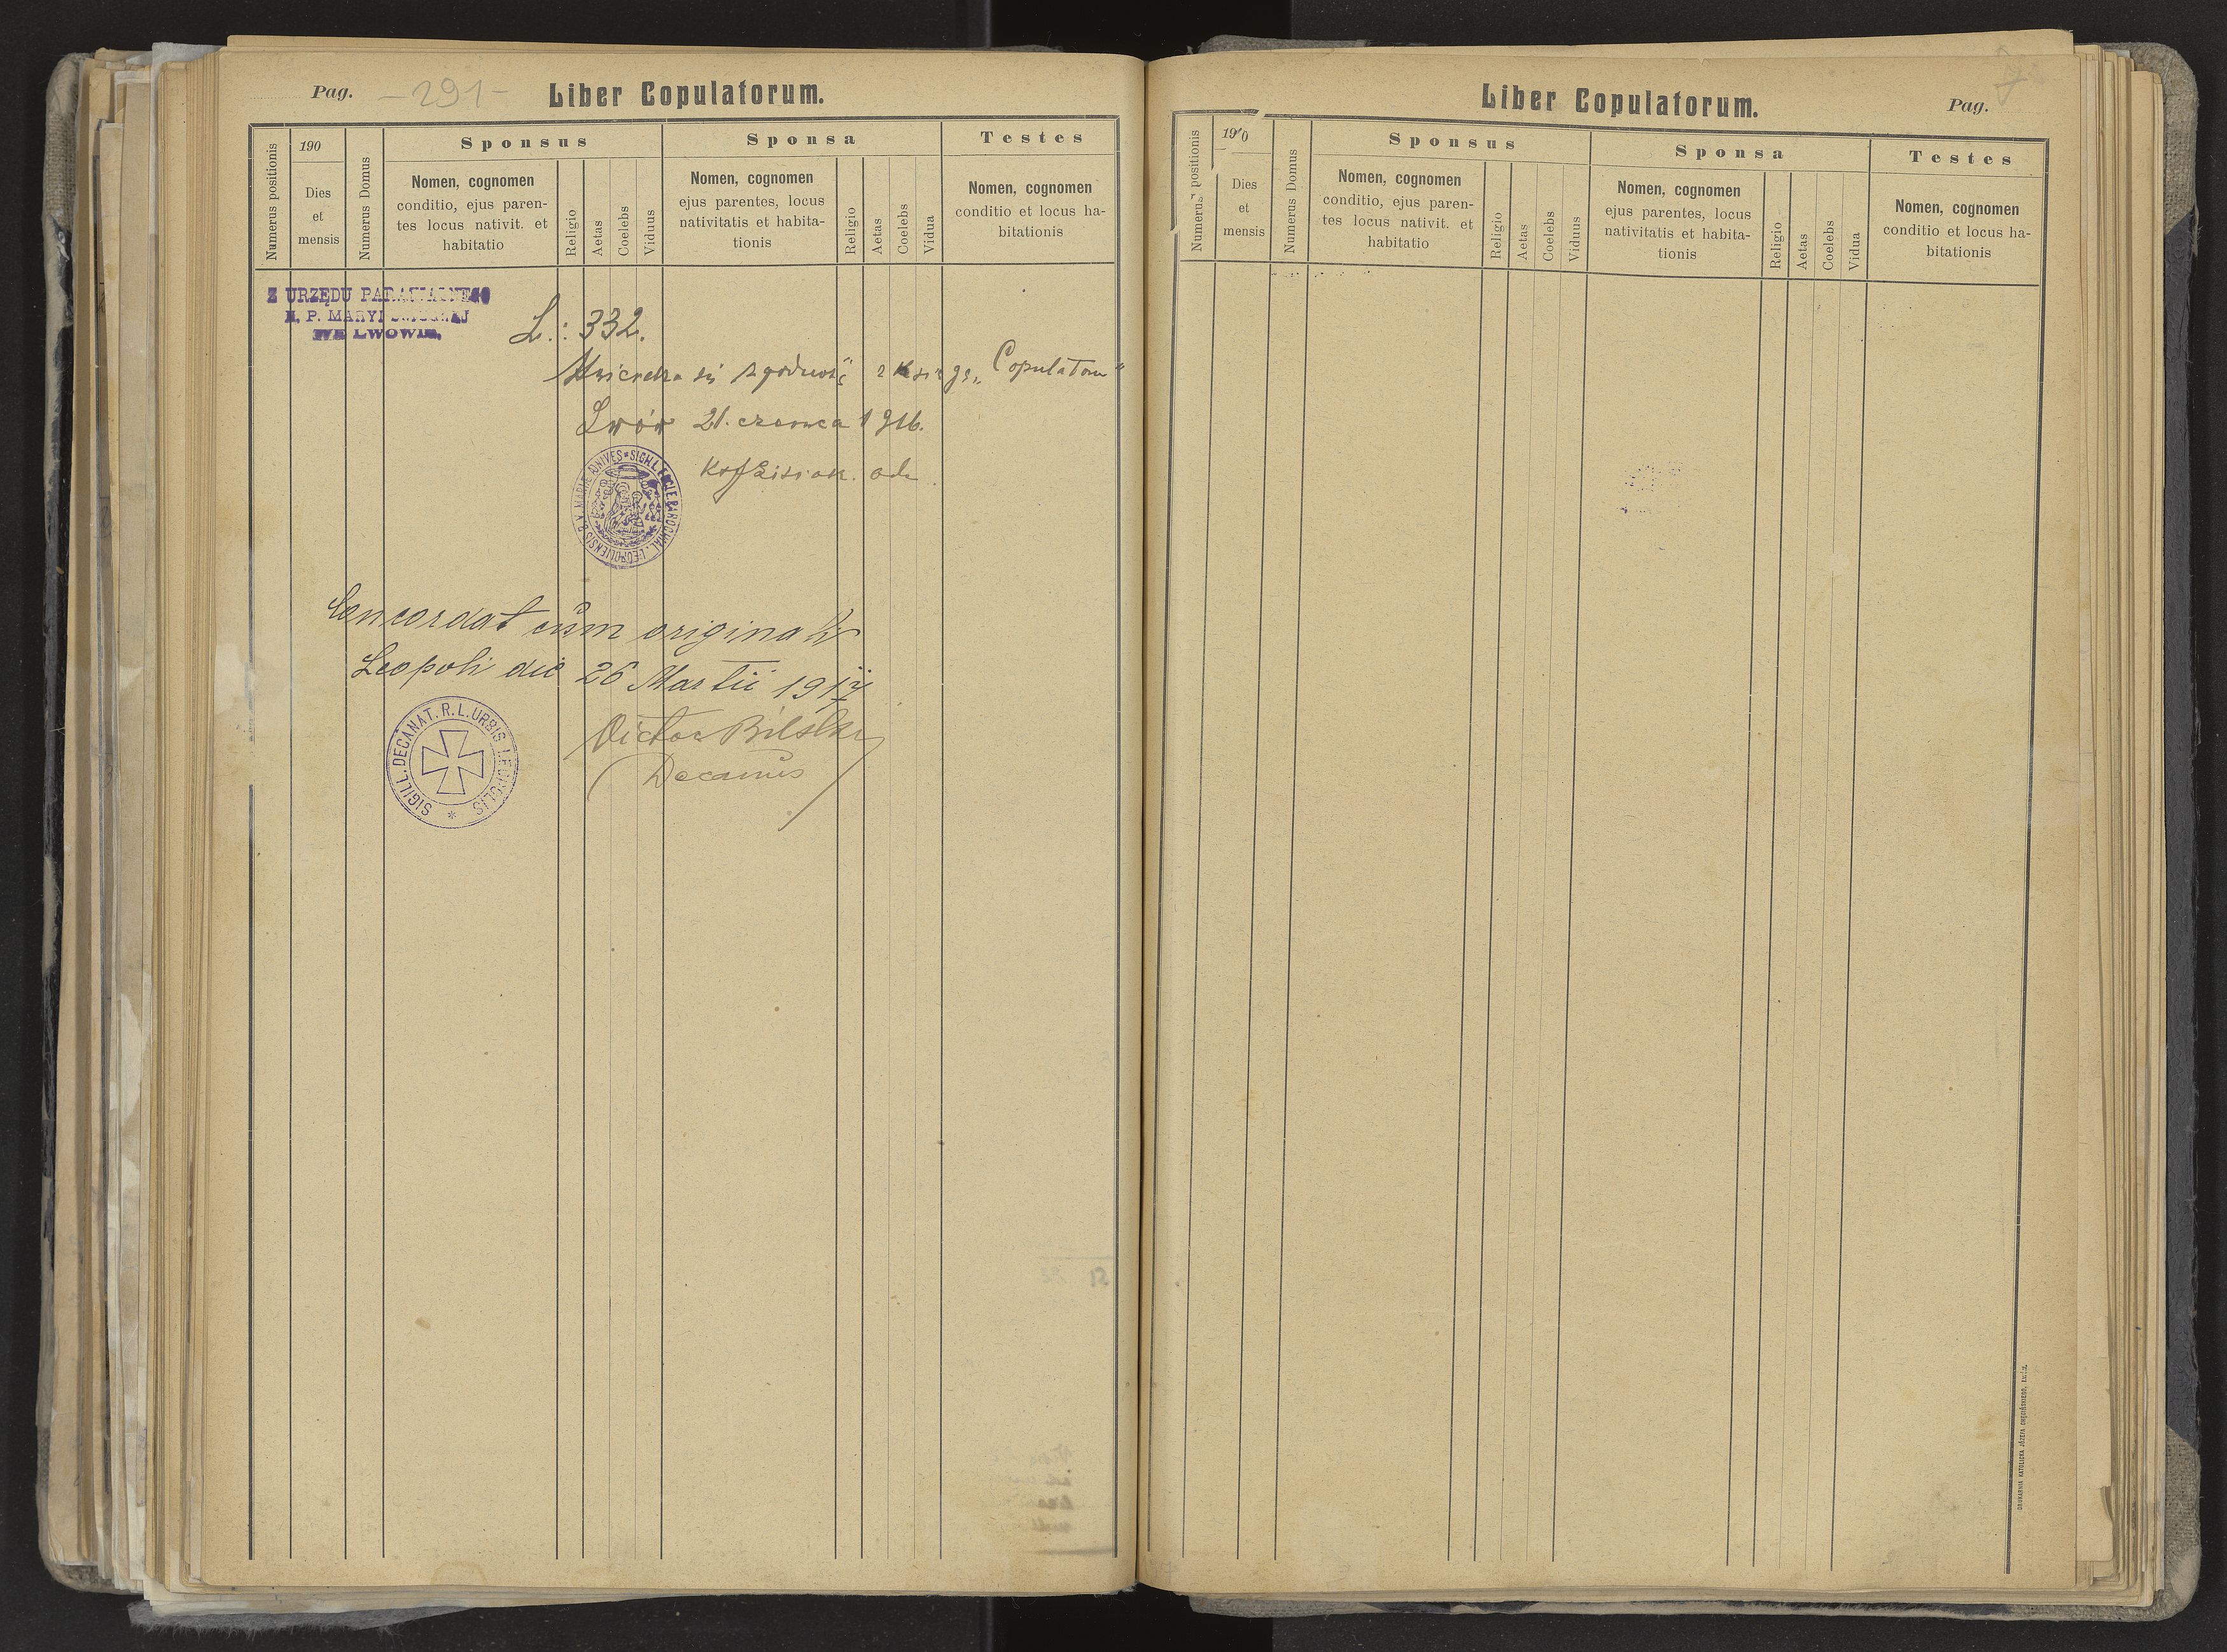 Pag. -291- Liber Copulatorum.
Numerus positionis
190
Dies
et
mensis
Numerus Domus
Sponsus
Nomen, cognomen
conditio, ejus paren-
tes locus nativit. et
habitatio
Religio
Aetas
Coelebs
Viduus
Sponsa
Nomen, cognomen
ejus parentes, locus
nativitatis et habita-
tionis
Religio
Aetas
Coelebs
Vidua
Testes
Nomen, cognomen
conditio et locus ha-
bitationis
Z URZĘDU PARAFIALNEGO
N. P. MARYI ŚNIEŻNEJ
WE LWOWIE.
L.: 332.
zgodność z księgą „Copulatorum"
Lwów 21. czerwca 1916.
SIGILL. ECCLE. PAROCHIAL. LEOPOLIENSIS B. V. MARIAE AD NIVES
Concordat cum originali
Leopoli die 26 Martii 1917
Victor Bilski
Decanus
SIGILL. DECANAT. R. L. URBIS LEOPOLIS *
Liber Copulatorum. Pag.
Numerus positionis
190
Dies
et
mensis
Numerus Domus
Sponsus
Nomen, cognomen
conditio, ejus paren-
tes locus nativit. et
habitatio
Religio
Aetas
Coelebs
Viduus
Sponsa
Nomen, cognomen
ejus parentes, locus
nativitatis et habita-
tionis
Religio
Aetas
Coelebs
Vidua
Testes
Nomen, cognomen
conditio et locus ha-
bitationis
DRUKARNIA KATOLICKA JÓZEFA